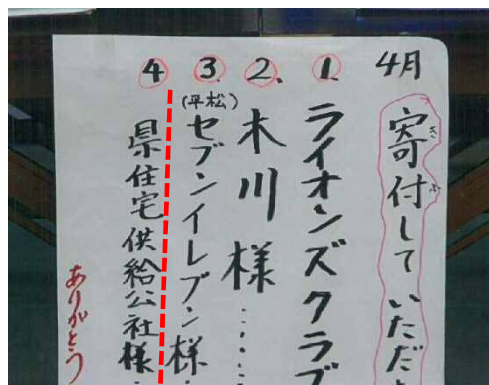 4月
寄付していただ
1. ライオンズクラブ
2. 木川様……
3. (平松)セブンイレブン様…
4 県住宅供給公社様…
ありがとう